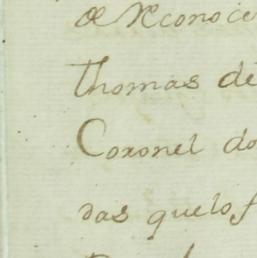 de Reconoce
Thomas de
Coronel do
das quelof